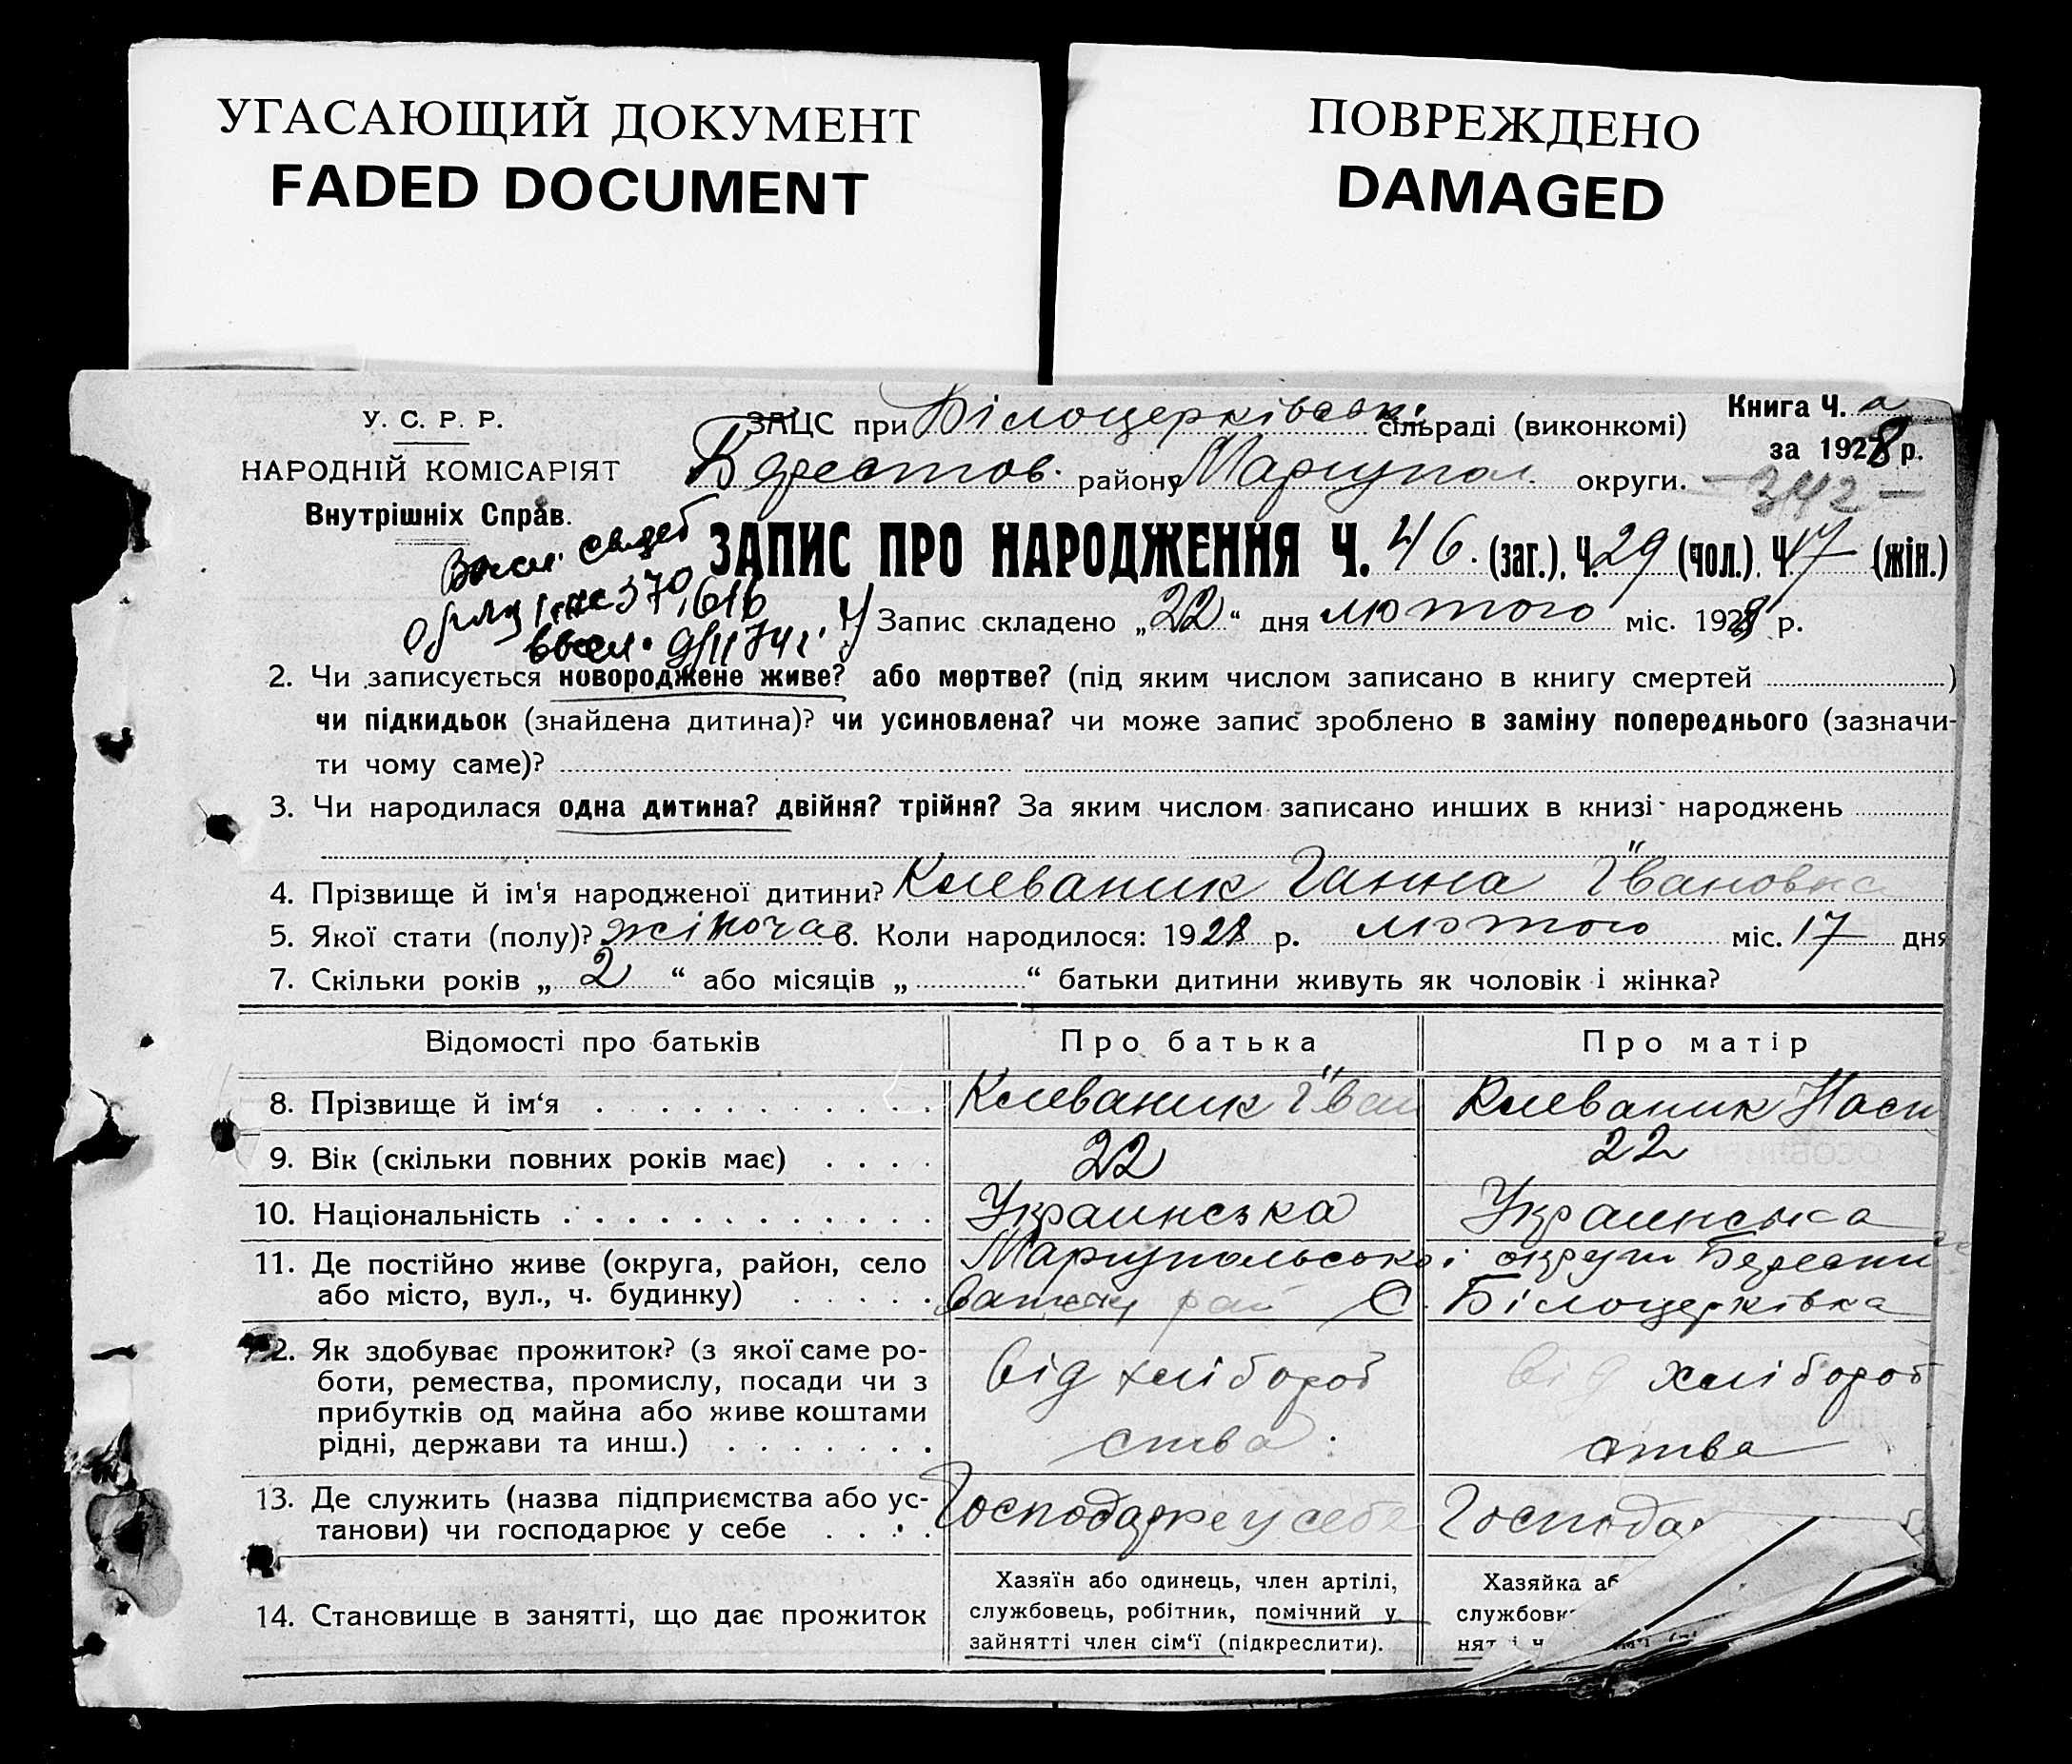 УГАСАЮЩИЙ ДОКУМЕНТ
FADED DOCUMENT
ПОВРЕЖДЕНО
DAMAGED
У. С. Р. Р.
НАРОДНІЙ КОМІСАРІЯТ
Внутрішніх Справ.
Книга Ч. а
за 1928 р.
ЗАЦС при Білоцерківські сільраді (виконкомі)
Берестов. району Маріупол. округи.
— 342 —
ЗАПИС ПРО НАРОДЖЕННЯ Ч. 46. (заг.), Ч. 29 (чол.). Ч. 17 (жін.)
370,616
Запис складено „22“ дня лютого міс. 1928 р.
2. Чи записується новороджене живе? або мертве? (під яким числом записано в книгу смертей )
чи підкидьок (знайдена дитина)? чи усиновлена? чи може запис зроблено в заміну попереднього (зазначи-
ти чому саме)?
3. Чи народилася одна дитина? двійня? трійня? За яким числом записано инших в книзі народжень
4. Прізвище й ім'я народженої дитини? Клеваник Ганна Івановна
5. Якої стати (полу)? жіноча 6. Коли народилося: 1928 р. лютого міс. 17 дня
7. Скільки років „ 2 “ або місяців „ “ батьки дитини живуть як чоловік і жінка?
Відомості про батьків Про батька Про матір
8. Прізвище й ім'я Клеваник Іван Клеваник Наст
9. Вік (скільки повних років має) 22 22
10. Національність Украинська Украинська
11. Де постійно живе (округа, район, село Маріупольської округи Берести
або місто, вул., ч. будинку) ватску рай С. Білоцерківка
12. Як здобуває прожиток? (з якої саме ро-
боти, ремества, промислу, посади чи з від хлібороб від хлібороб
прибутків од майна або живе коштами
рідні, держави та инш.) ства ства
13. Де служить (назва підприємства або ус- Господарює у себе Господа
танови) чи господарює у себе
14. Становище в занятті, що дає прожиток
Хазяїн або одинець, член артілі,
службовець, робітник, помічний у
зайнятті член сім'ї (підкреслити).
Хазяйка аб
службовк